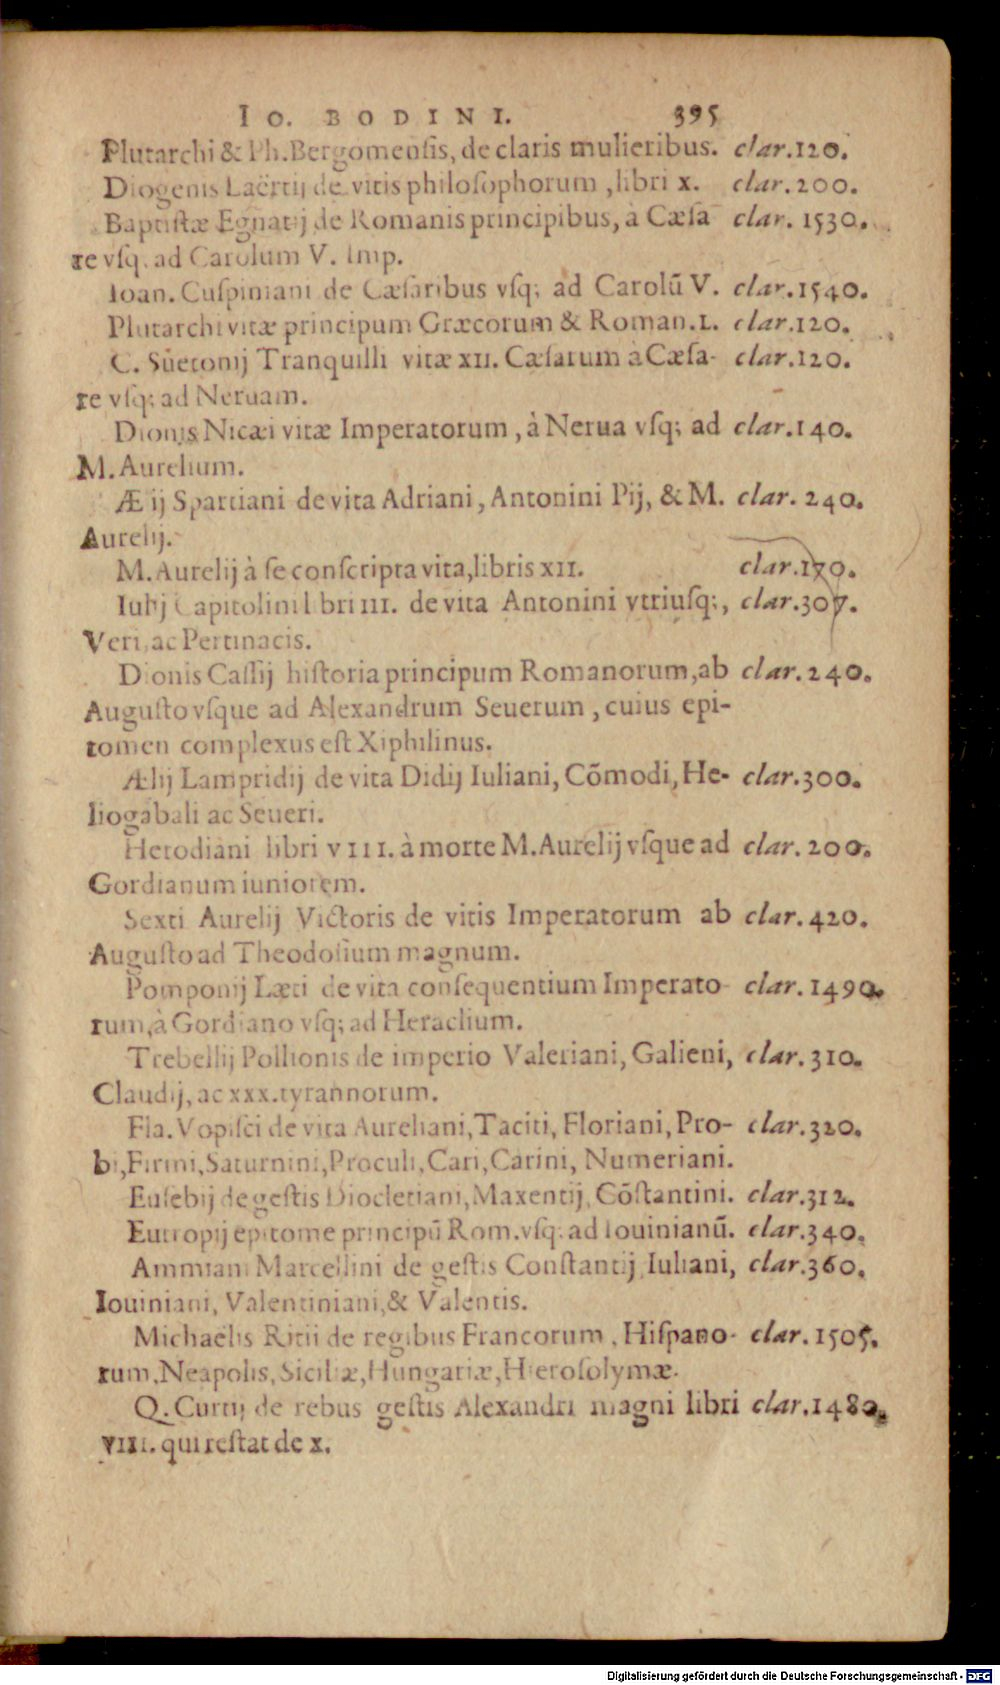 IO. BODINI. 395
Plutarchi & Ph. Bergomensis, de claris mulieribus. clar. 120.
Diogenis Laërtij de vitis philosophorum, libri X. clar. 200.
Baptistæ Egnatij de Romanis principibus, à Cæsa clar. 1530.
re vsq; ad Carolum V. Imp.
Ioan. Cuspiniani de Cæsaribus vsq; ad Carolũ V. clar. 1540.
Plutarchi vitæ principum Græcorum & Roman. L. clar. 120.
C. Suetonij Tranquilli vitæ XII. Cæsarum à Cæsa- clar. 120.
re vsq; ad Neruam.
Dionis Nicæi vitæ Imperatorum, à Nerua vsq; ad clar. 140.
M. Aurelium.
Æ ij Spartiani de vita Adriani, Antonini Pij, & M. clar. 240.
Aurelij.
M. Aurelij à se conscripta vita, libris XII. clar. 170.
Iulij Capitolini l bri III. de vita Antonini vtriusq;, clar. 307.
Veri, ac Pertinacis.
Dionis Cassij historia principum Romanorum, ab clar. 240.
Augusto vsque ad Alexandrum Seuerum, cuius epi-
tomen complexus est Xiphilinus.
Ælij Lampridij de vita Didij Iuliani, Cõmodi, He- clar. 300.
liogabali ac Seueri.
Herodiani libri VIII. à morte M. Aurelij vsque ad clar. 200.
Gordianum iuniorem.
Sexti Aurelij Victoris de vitis Imperatorum ab clar. 420.
Augusto ad Theodosium magnum.
Pomponij Læti de vita consequentium Imperato- clar. 1490.
rum, à Gordiano vsq; ad Heraclium.
Trebellij Pollionis de imperio Valeriani, Galieni, clar. 310.
Claudij, ac XXX. tyrannorum.
Fla. Vopisci de vita Aureliani, Taciti, Floriani, Pro- clar. 320.
bi, Firmi, Saturnini, Proculi, Cari, Carini, Numeriani.
Eusebij de gestis Diocletiani, Maxentij, Cõstantini. clar. 312.
Eutropij epitome principũ Rom. vsq; ad Iouinianũ. clar. 340.
Ammiani Marcellini de gestis Constantij Iuliani, clar. 360.
Iouiniani, Valentiniani, & Valentis.
Michaelis Ritii de regibus Francorum, Hispano- clar. 1505.
rum, Neapolis, Siciliæ, Hungariæ, Hierosolymæ.
Q. Curtij de rebus gestis Alexandri magni libri clar. 1480.
VIII. qui restat de X.
Digitalisierung gefördert durch die Deutsche Forschungsgemeinschaft - DFG